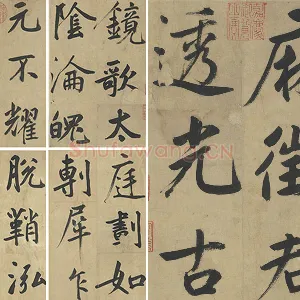 麻徵君
透光古
鏡歌太
陰淪魄
元不耀
庭劃如
剸犀乍
脫鞘泓